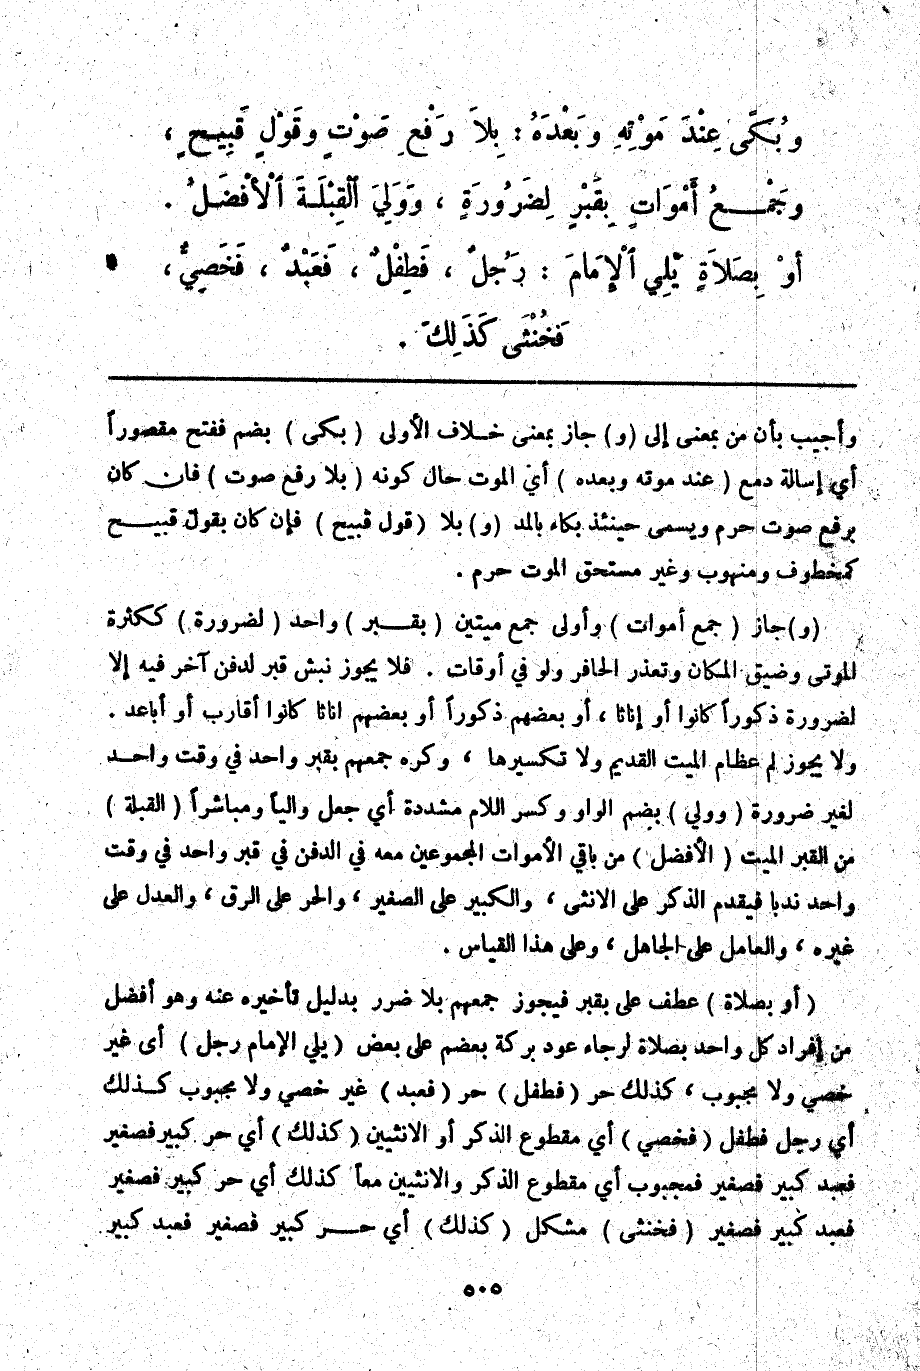 وَبُكًى عِنْدَ مَوْتِهِ وَبَعْدَهُ : بِلاَ رَفْعِ صَوْتٍ وَقَوْلٍ قَبِيحٍ ،
وَجَمْعُ أَمْوَاتٍ بِقَبْرٍ لِضَرُورَةٍ ، وَوَلِيَ ٱلْقِبْلَةَ ٱلْأَفْضَلُ .
أَوْ بِصَلاَةٍ يَلِي ٱلْإِمَامَ : رَجُلٌ ، فَطِفْلٌ ، فَعَبْدٌ ، فَخَصِيٌّ ،
فَخُنْثَى كَذَلِكَ .
وأجيب بأن من بمعنى إلى (و) جاز بمعنى خلاف الأولى ( بكى ) بضم ففتح مقصوراً
أي إسالة دمع ( عند موته وبعده ) أي الموت حال كونه ( بلا رفع صوت ) فان كان
برفع صوت حرم ويسمى حينئذ بكاء بالمد (و) بلا ( قول قبيح ) فإن كان بقول قبيح
كمخطوف ومنهوب وغير مستحق الموت حرم .
(و) جاز ( جمع أموات ) وأولى جمع ميتين ( بقبر ) واحد ( لضرورة ) ككثرة
الموتى وضيق المكان وتعذر الحافر ولو في أوقات . فلا يجوز نبش قبر لدفن آخر فيه إلا
لضرورة ذكوراً كانوا أو إناثا ، أو بعضهم ذكوراً أو بعضهم اناثا كانوا أقارب أو أباعد .
ولا يجوز لم عظام الميت القديم ولا تكسيرها ، وكره جمعهم بقبر واحد في وقت واحد
لغير ضرورة ( وولي ) بضم الواو وكسر اللام مشددة أي جعل والياً ومباشراً ( القبلة )
من القبر الميت ( الأفضل ) من باقي الأموات المجموعين معه في الدفن في قبر واحد في وقت
واحد ندبا فيقدم الذكر على الانثى ، والكبير على الصغير ، والحر على الرق ، والعدل على
غيره ، والعامل على الجاهل ، وعلى هذا القياس .
( أو بصلاة ) عطف على بقبر فيجوز جمعهم بلا ضرر بدليل تأخيره عنه وهو أفضل
من إفراد كل واحد بصلاة لرجاء عود بركة بعضم على بعض ( يلي الإمام رجل ) أى غير
خصي ولا مجبوب ، كذلك حر ( فطفل ) حر ( فعبد ) غير خصي ولا مجبوب كذلك
أي رجل فطفل ( فخصي ) أي مقطوع الذكر أو الانثيين ( كذلك ) أي حر كبير فصغير
فعبد كبير فصغير فمجبوب أي مقطوع الذكر والانثيين معاً كذلك أي حر كبير فصغير
فعبد كبير فصغير ( فخنثى ) مشكل ( كذلك ) أي حر كبير فصغير فعبد كبير
٥٠٥